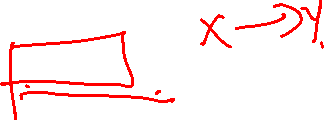 X → Y